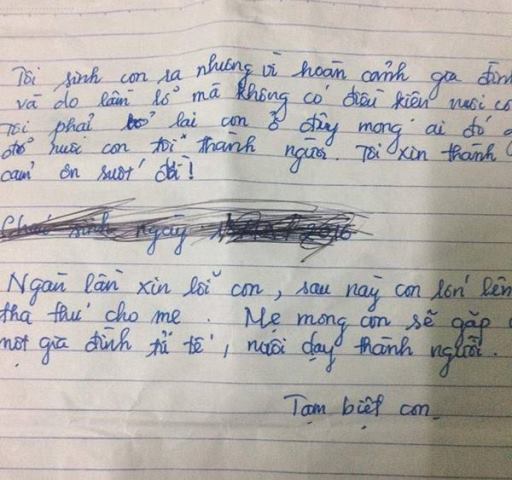 Tôi sinh con ra nhưng vì hoàn cảnh gia đìn
và do lầm lỡ mà không có điều kiện nuôi co
Tôi phải bỏ lại con ở đây mong ai đó
đỡ nuôi con tôi thành người. Tôi xin thành
cảm ơn suốt đời!
Cháu sinh ngày 2016
Ngàn lần xin lỗi con, sau này con lớn lên
tha thứ cho mẹ. Mẹ mong con sẽ gặp
một gia đình tử tế, nuôi dạy thành người.
Tạm biệt con.